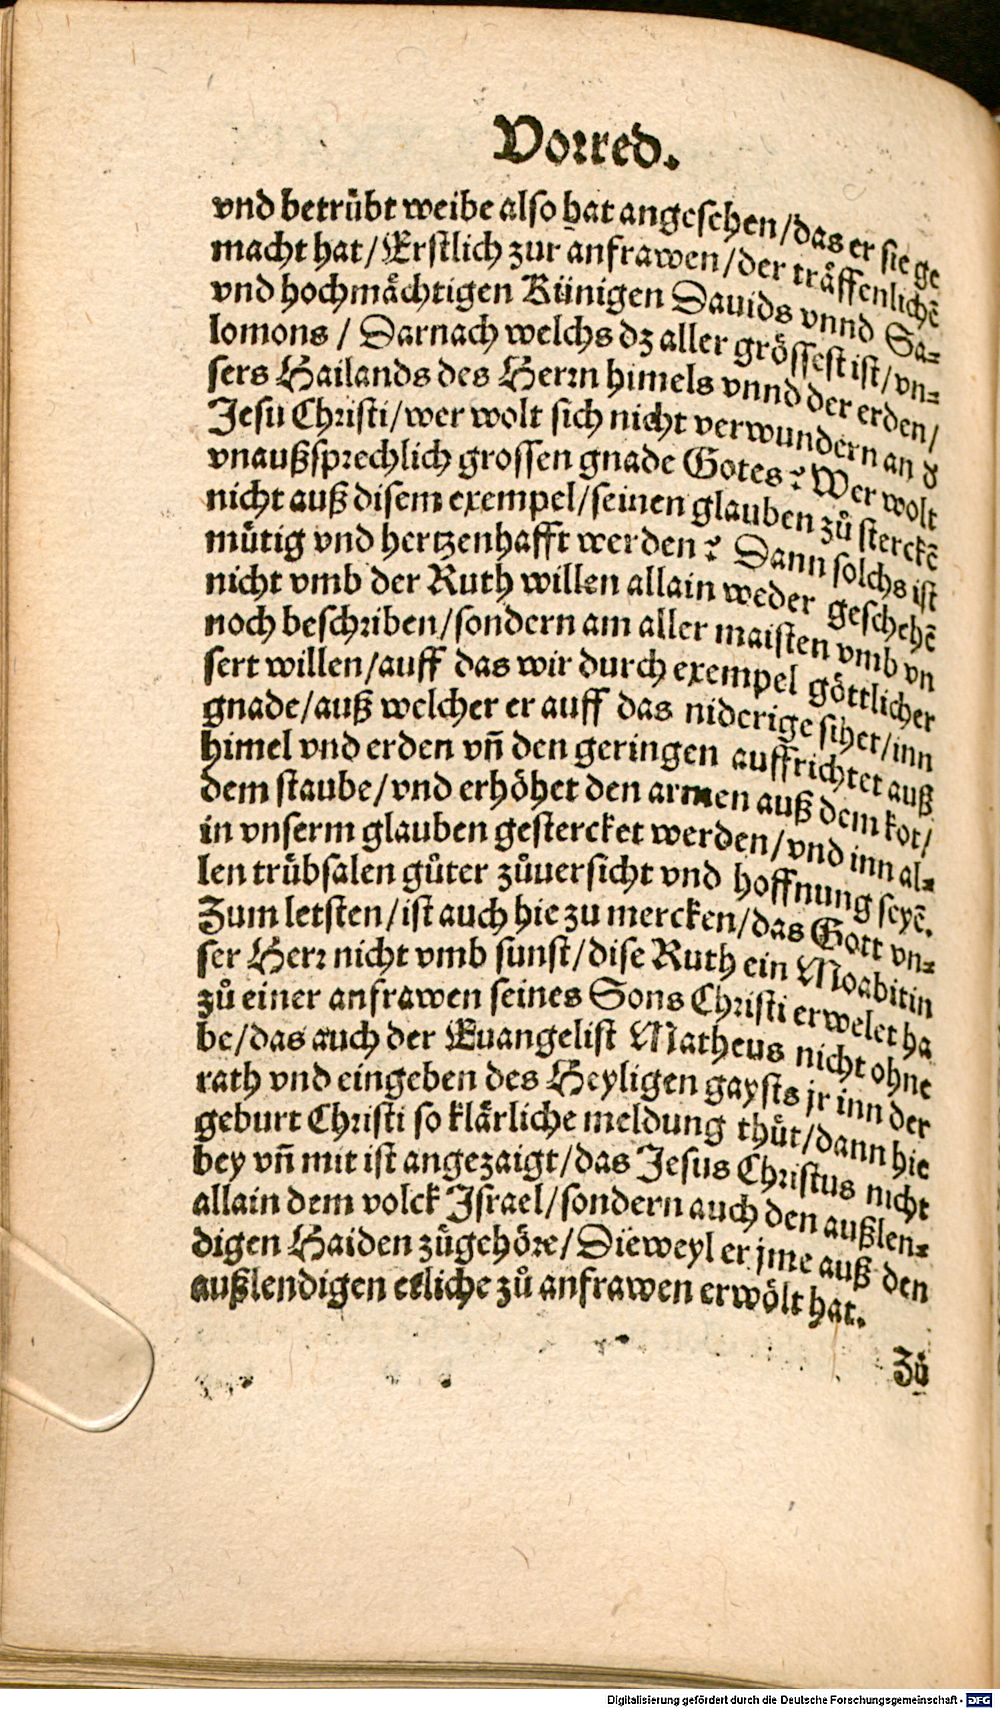 Vorred.
vnd betruͤbt weibe also hat angesehen/das er sie ge
macht hat/Erstlich zur anfrawen/der traͤffenlichẽ
vnd hochmaͤchtigen Künigen Dauids vnnd Sa-
lomons / Darnach welchs dz aller groͤssest ist/vn-
sers Hailands des Herrn himels vnnd der erden/
Jesu Christi/wer wolt sich nicht verwundern an d
vnaußsprechlich grossen gnade Gotes? Wer wolt
nicht auß disem exempel/seinen glauben zuͦ sterckẽ
muͤtig vnd hertzenhafft werden? Dann solchs ist
nicht vmb der Ruth willen allain weder geschehẽ
noch beschriben/sondern am aller maisten vmb vn
sert willen/auff das wir durch exempel goͤttlicher
gnade/auß welcher er auff das niderige sihet/inn
himel vnd erden vñ den geringen auffrichtet auß
dem staube/vnd erhoͤhet den armen auß dem kot/
in vnserm glauben gestercket werden/vnd inn al-
len truͤbsalen guͤter zuͦuersicht vnd hoffnung seyẽ.
Zum letsten/ist auch hie zu mercken/das Gott vn-
ser Herr nicht vmb sunst/dise Ruth ein Moabitin
zuͦ einer anfrawen seines Sons Christi erwelet ha
be/das auch der Euangelist Matheus nicht ohne
rath vnd eingeben des Heyligen gaysts jr inn der
geburt Christi so klaͤrliche meldung thuͤt/dann hie
bey vñ mit ist angezaigt/das Jesus Christus nicht
allain dem volck Jsrael/sondern auch den außlen-
digen Haiden zuͦgehoͤre/Dieweyl er jme auß den
außlendigen etliche zuͦ anfrawen erwoͤlt hat.
Zuͦ
Digitalisierung gefördert durch die Deutsche Forschungsgemeinschaft - DFG